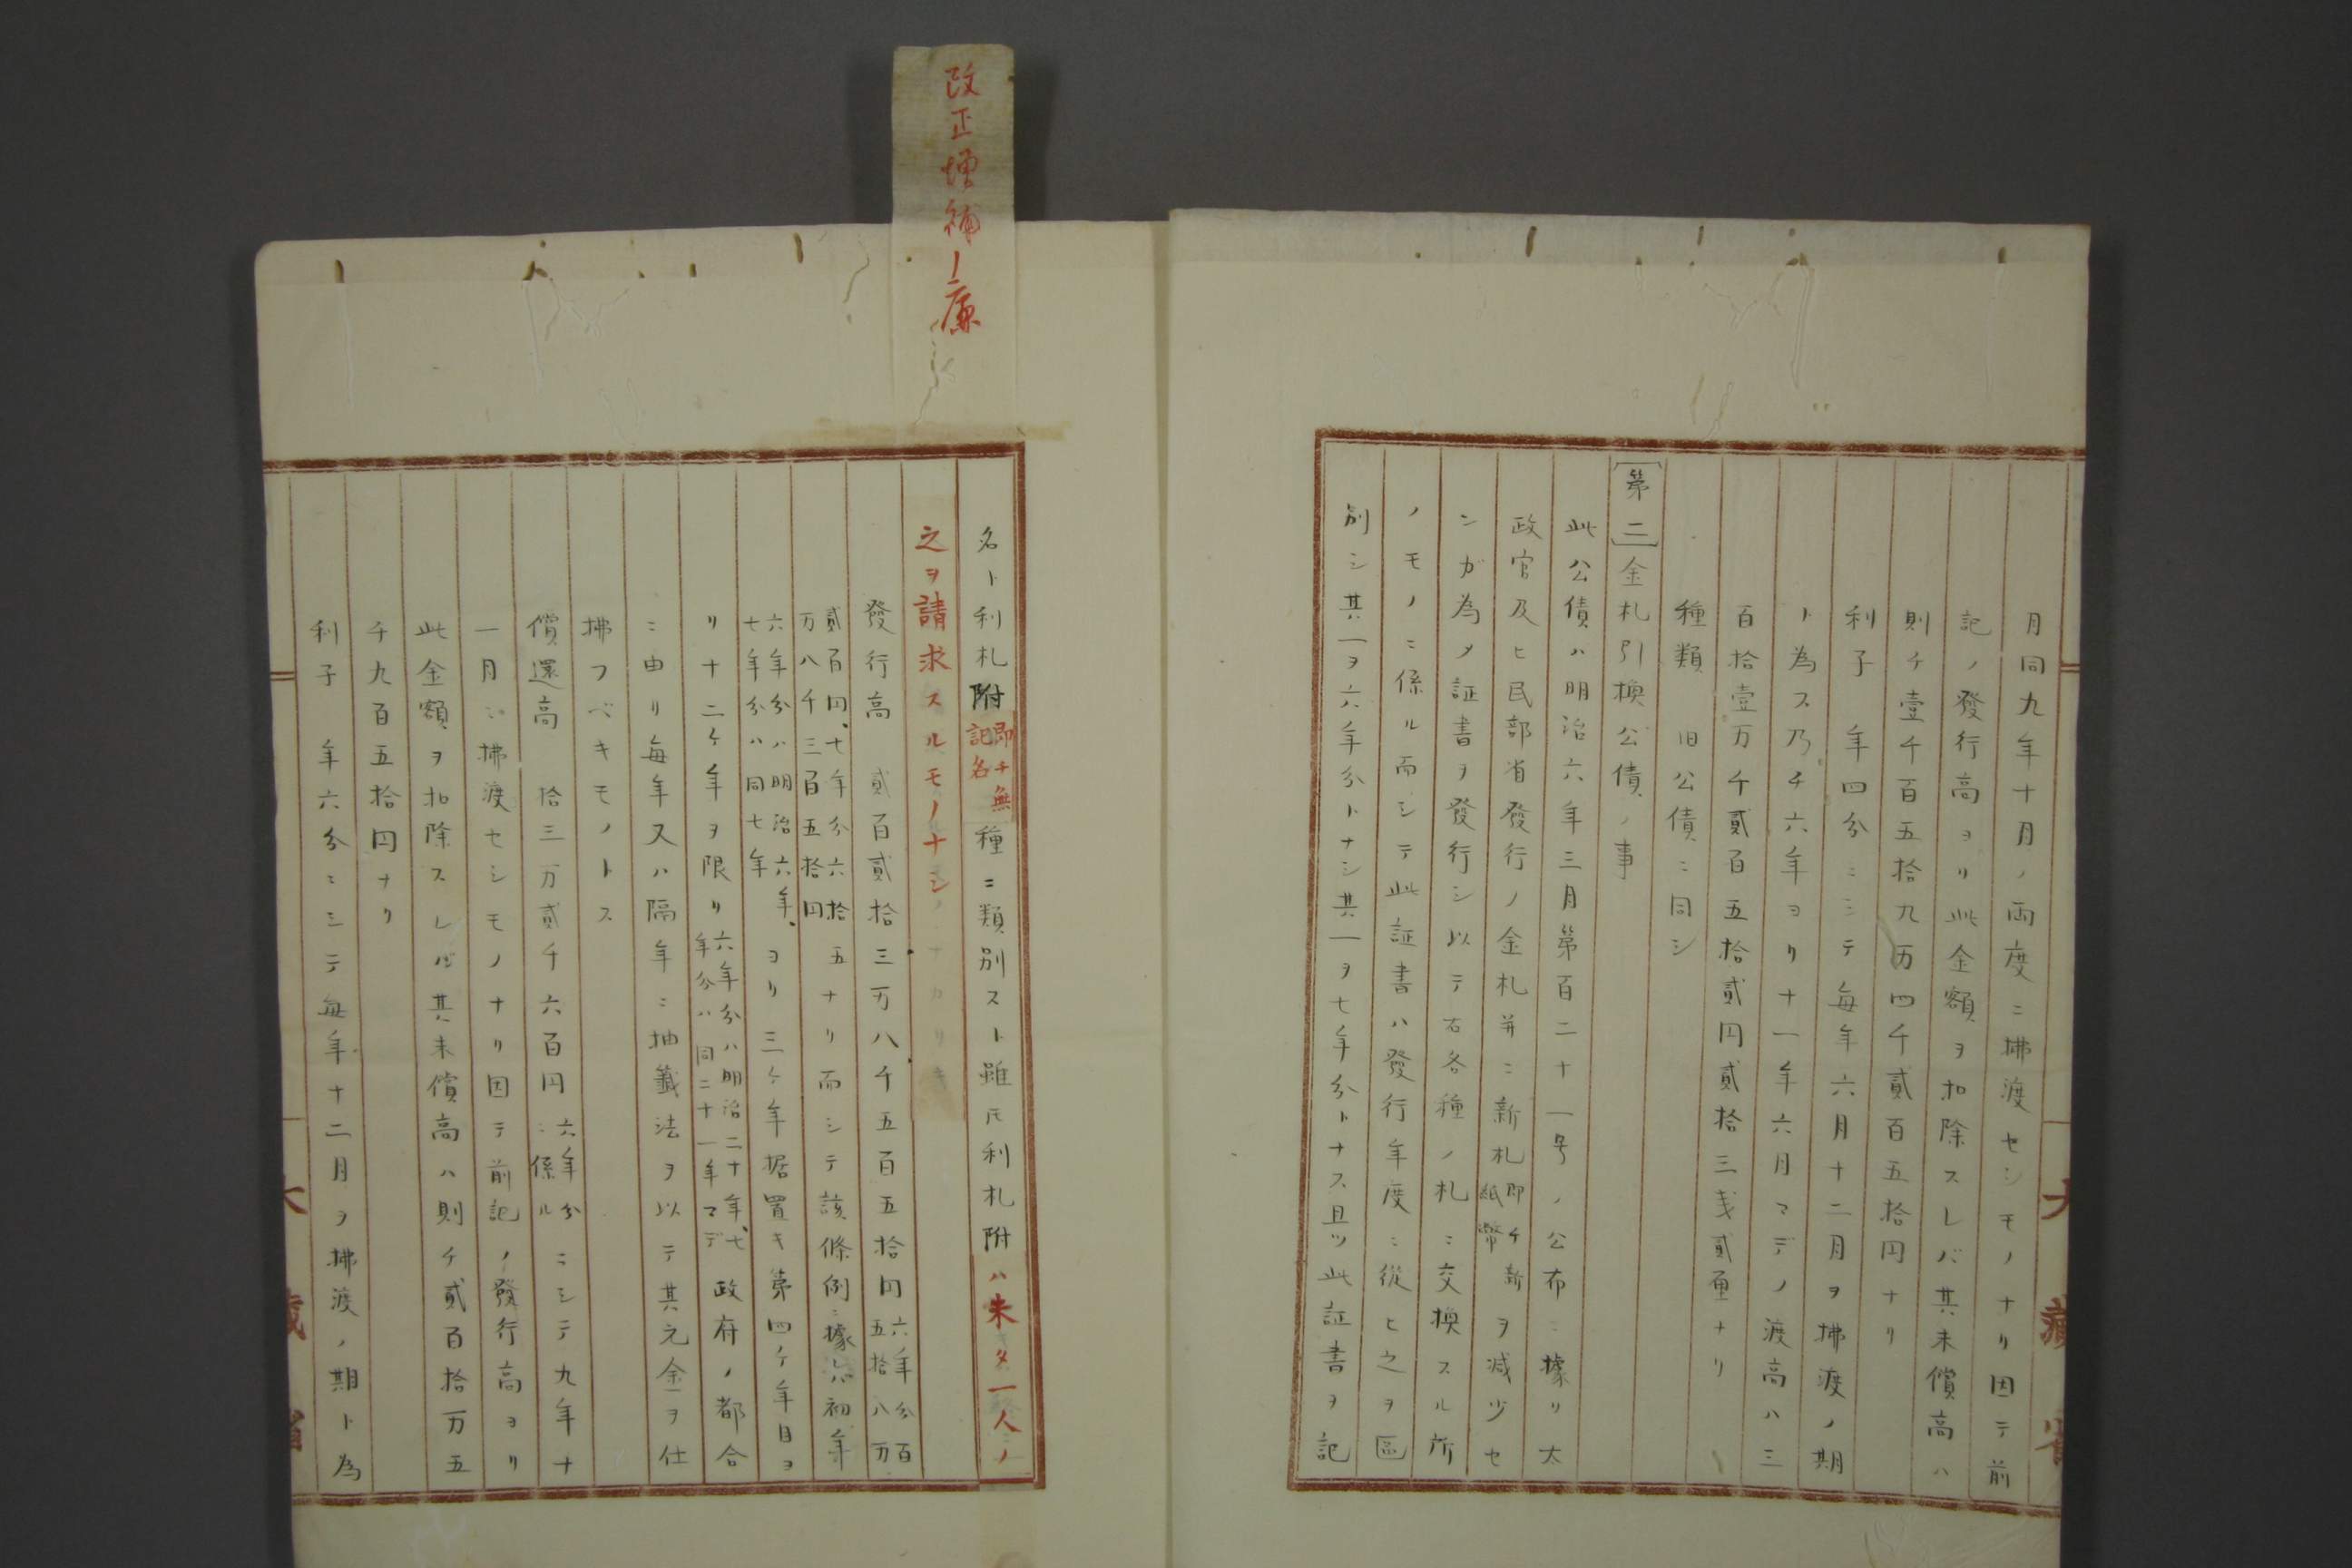 改正増補ノ廉
月同九年十月ノ両度ニ拂渡セシモノナリ因テ前
記ノ發行高ヨリ此金額ヲ扣除スレバ其未償高ハ
則チ壹千百五拾九万四千貳百五拾円ナリ
利子 年四分ニシテ毎年六月十二月ヲ拂渡ノ期
ト為ス乃チ六年ヨリ十一年六月マデノ渡高ハ三
百拾壹万千貳百五拾貳円貳拾三戋貳厘ナリ
種類 旧公債ニ同シ
第二 金札引換公債ノ事
此公債ハ明治六年三月第百二十一号ノ公布ニ據リ太
政官及ヒ民部省發行ノ金札并ニ新札即チ新紙幣ヲ減少セ
ンガ為メ証書ヲ發行シ以テ右各種ノ札ニ交換スル所
ノモノニ係ル而シテ此証書ハ發行年度ニ從ヒ之ヲ區
別シ其一ヲ六年分トナシ其一ヲ七年分トナス且ツ此証書ヲ記
名ト利札附即チ無記名種ニ類別スト雖𪜈利札附ハ未タ一人ノ
之ヲ請求スルモノナシ
發行高 貳百貳拾三万八千五百五拾円六年分百五拾八万
貳百円、七年分六拾五万八千三百五拾円ナリ而シテ該條例ニ據レハ初年
六年分ハ明治六年、七年分ハ同七年ヨリ三ケ年据置キ第四ケ年目ヨ
リ十二ケ年ヲ限リ六年分ハ明治二十年、七年分ハ同二十一年マデ政府ノ都合
ニ由リ毎年又ハ隔年ニ抽籤法ヲ以テ其元金ヲ仕
拂フベキモノトス
償還高 拾三万貳千六百円六年分ニ係ルニシテ九年十
一月ニ拂渡セシモノナリ因テ前記ノ發行高ヨリ
此金額ヲ扣除スレバ其未償高ハ則チ貳百拾万五
千九百五拾円ナリ
利子 年六分ニシテ毎年十二月ヲ拂渡ノ期ト為
大藏省